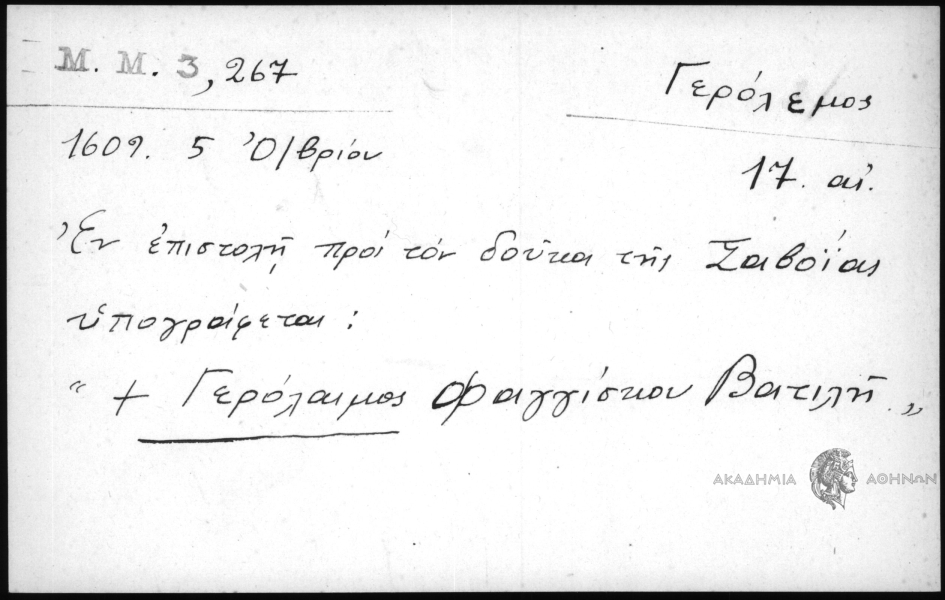 Μ. Μ. 3, 267
Γερόλεμος
1609. 5 Ὀ/βρίου
17. αἰ.
Ἐν ἐπιστολῇ πρὸς τὸν δοῦκα τῆς Σαβοΐας
ὑπογράφεται :
“ + Γερόλαιμος Φαγγίσκου Βατιλῆ „
ΑΚΑΔΗΜΙΑ ΑΘΗΝΩΝ